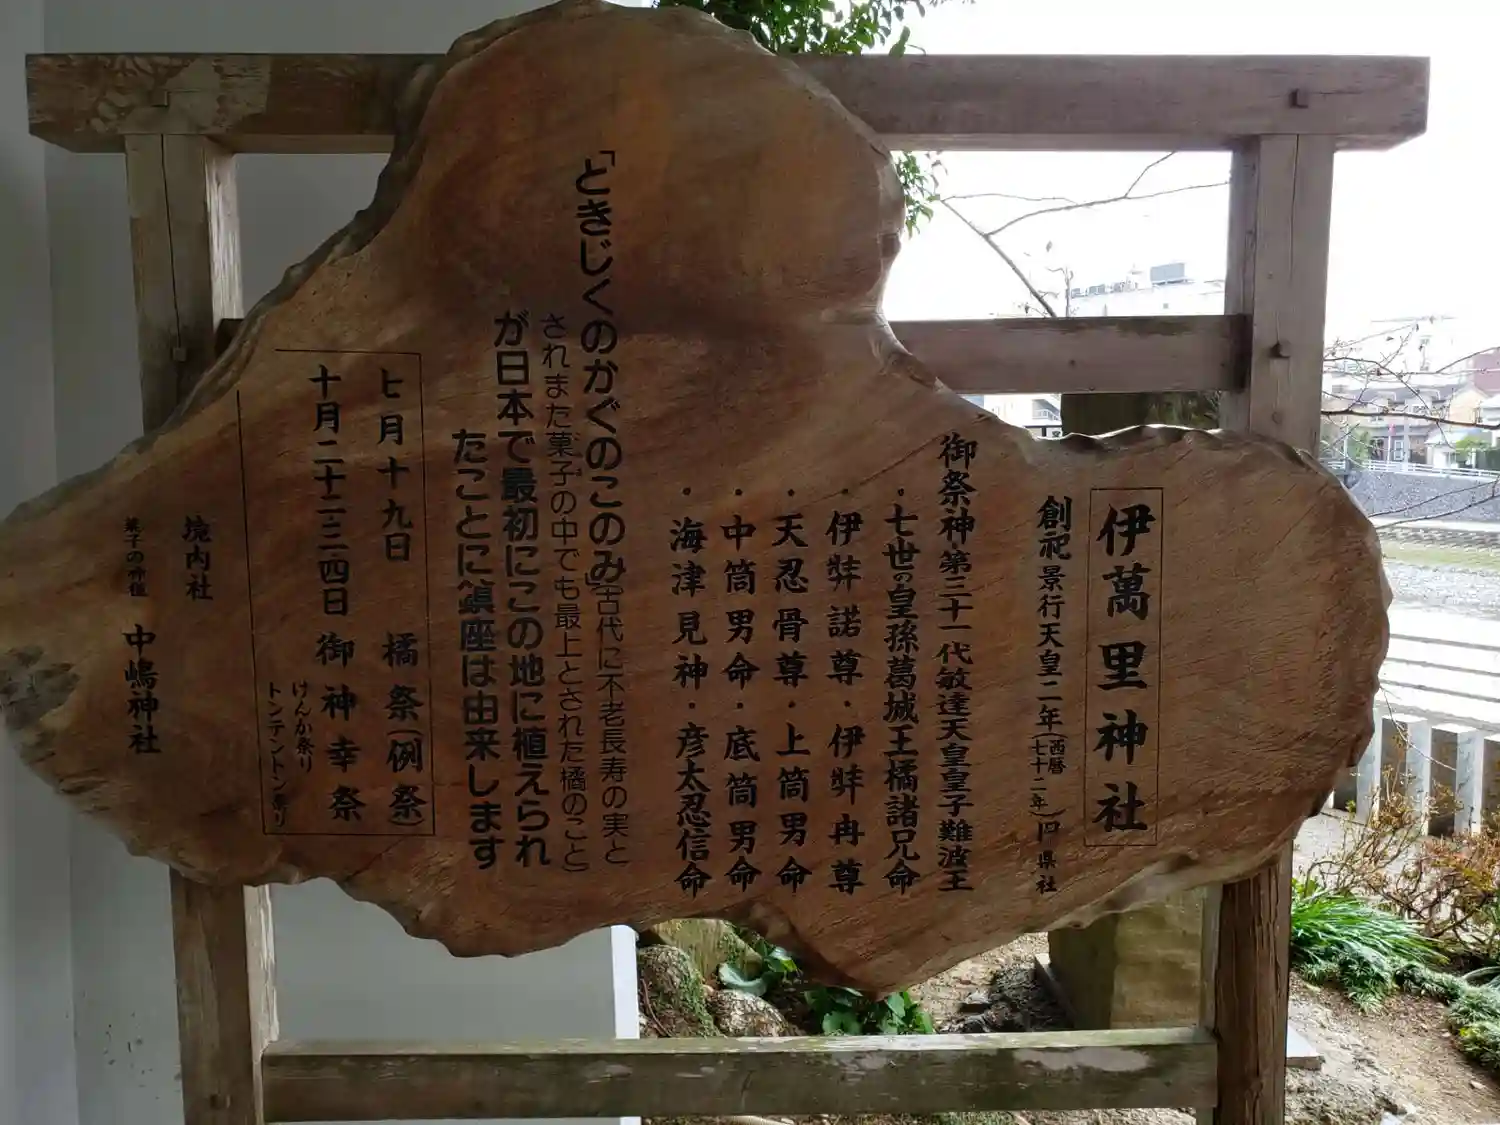 伊萬里神社
創祀 景行天皇二年(西暦七十二年)旧県社
御祭神 第三十一代敏達天皇皇子難波王
・七世の皇孫葛城王橘諸兄命
・伊弉諾尊・伊弉冉尊
・天忍骨尊・上筒男命
・中筒男命・底筒男命
・海津見神・彦太忍信命
「ときじくのかぐのこのみ」(古代に不老長寿の実と
されまた菓子の中でも最上とされた橘のこと)
が日本で最初にこの地に植えられ
たことに鎮座は由来します
七月十九日 橘祭(例祭)
十月二十二三四日 御神幸祭
けんか祭り
トンテントン祭り
境内社
菓子の神様 中嶋神社